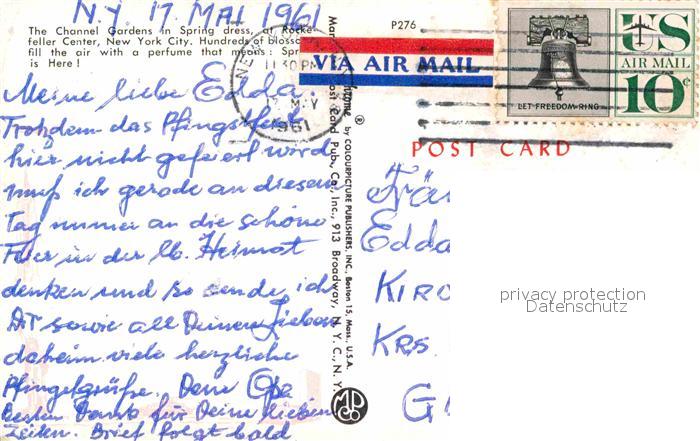 N.Y. 17 MAI 1961
The Channel Gardens in Spring dress, at Rocke-
feller Center, New York City. Hundreds of blossoms
fill the air with a perfume that means: Spring
is Here!
P276
VIA AIR MAIL
US
AIR MAIL
10¢
LET FREEDOM RING
NEW
11 30 PM
17 MAY
1961
POST CARD
Meine liebe Edda.
Trotzdem das Pfingstfest
hier nicht gefeiert wird
muß ich gerade an diesem
Tag immer an die schöne
Feier in der lb. Heimat
denken und so sende ich
Dir sowie all Deinen Lieben
daheim viele herzliche
Pfingstgrüße. Deine
besten Dank für Deine lieben
Zeilen. Brief folgt bald
by COLOURPICTURE PUBLISHERS, INC., Boston 15, Mass., U.S.A.
Post Card Pub. Co., Inc., 913 Broadway, N. Y. C., N. Y.
Frä
Edda
KIRC
KRS.
G
privacy protection
Datenschutz